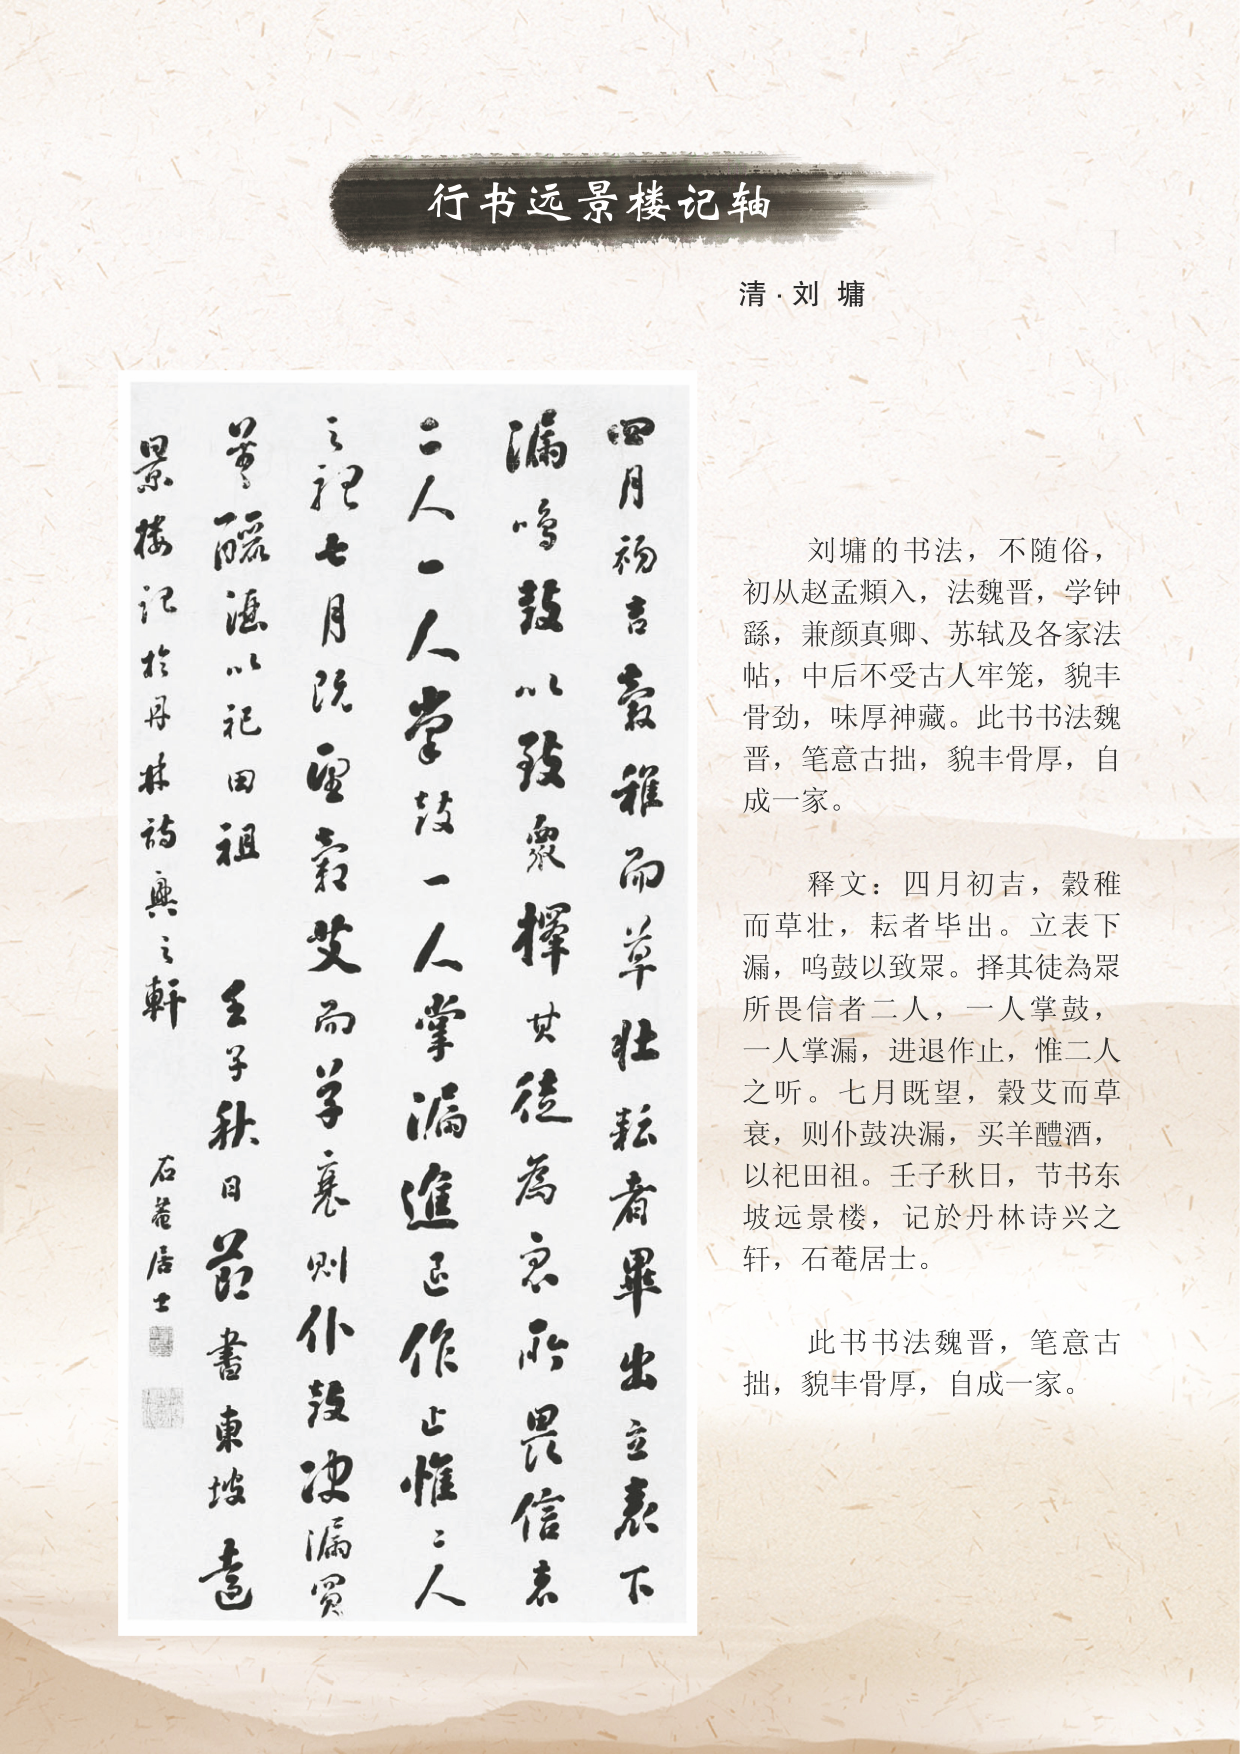 行书远景楼记轴
清·刘 墉
四月初吉穀稚而草壯耘者畢出立表下
漏鳴鼓以致衆擇其徒為衆所畏信者
二人一人掌鼓一人掌漏進退作止惟二人
之聽七月既望穀艾而草衰則仆鼓決漏買
羊醴酒以祀田祖 壬子秋日節書東坡遠
景樓記於丹林詩興之軒 石菴居士
刘墉的书法，不随俗，
初从赵孟頫入，法魏晋，学钟
繇，兼颜真卿、苏轼及各家法
帖，中后不受古人牢笼，貌丰
骨劲，味厚神藏。此书书法魏
晋，笔意古拙，貌丰骨厚，自
成一家。
释文：四月初吉，穀稚
而草壮，耘者毕出。立表下
漏，呜鼓以致眾。择其徒為眾
所畏信者二人，一人掌鼓，
一人掌漏，进退作止，惟二人
之听。七月既望，穀艾而草
衰，则仆鼓决漏，买羊醴酒，
以祀田祖。壬子秋日，节书东
坡远景楼，记於丹林诗兴之
轩，石菴居士。
此书书法魏晋，笔意古
拙，貌丰骨厚，自成一家。